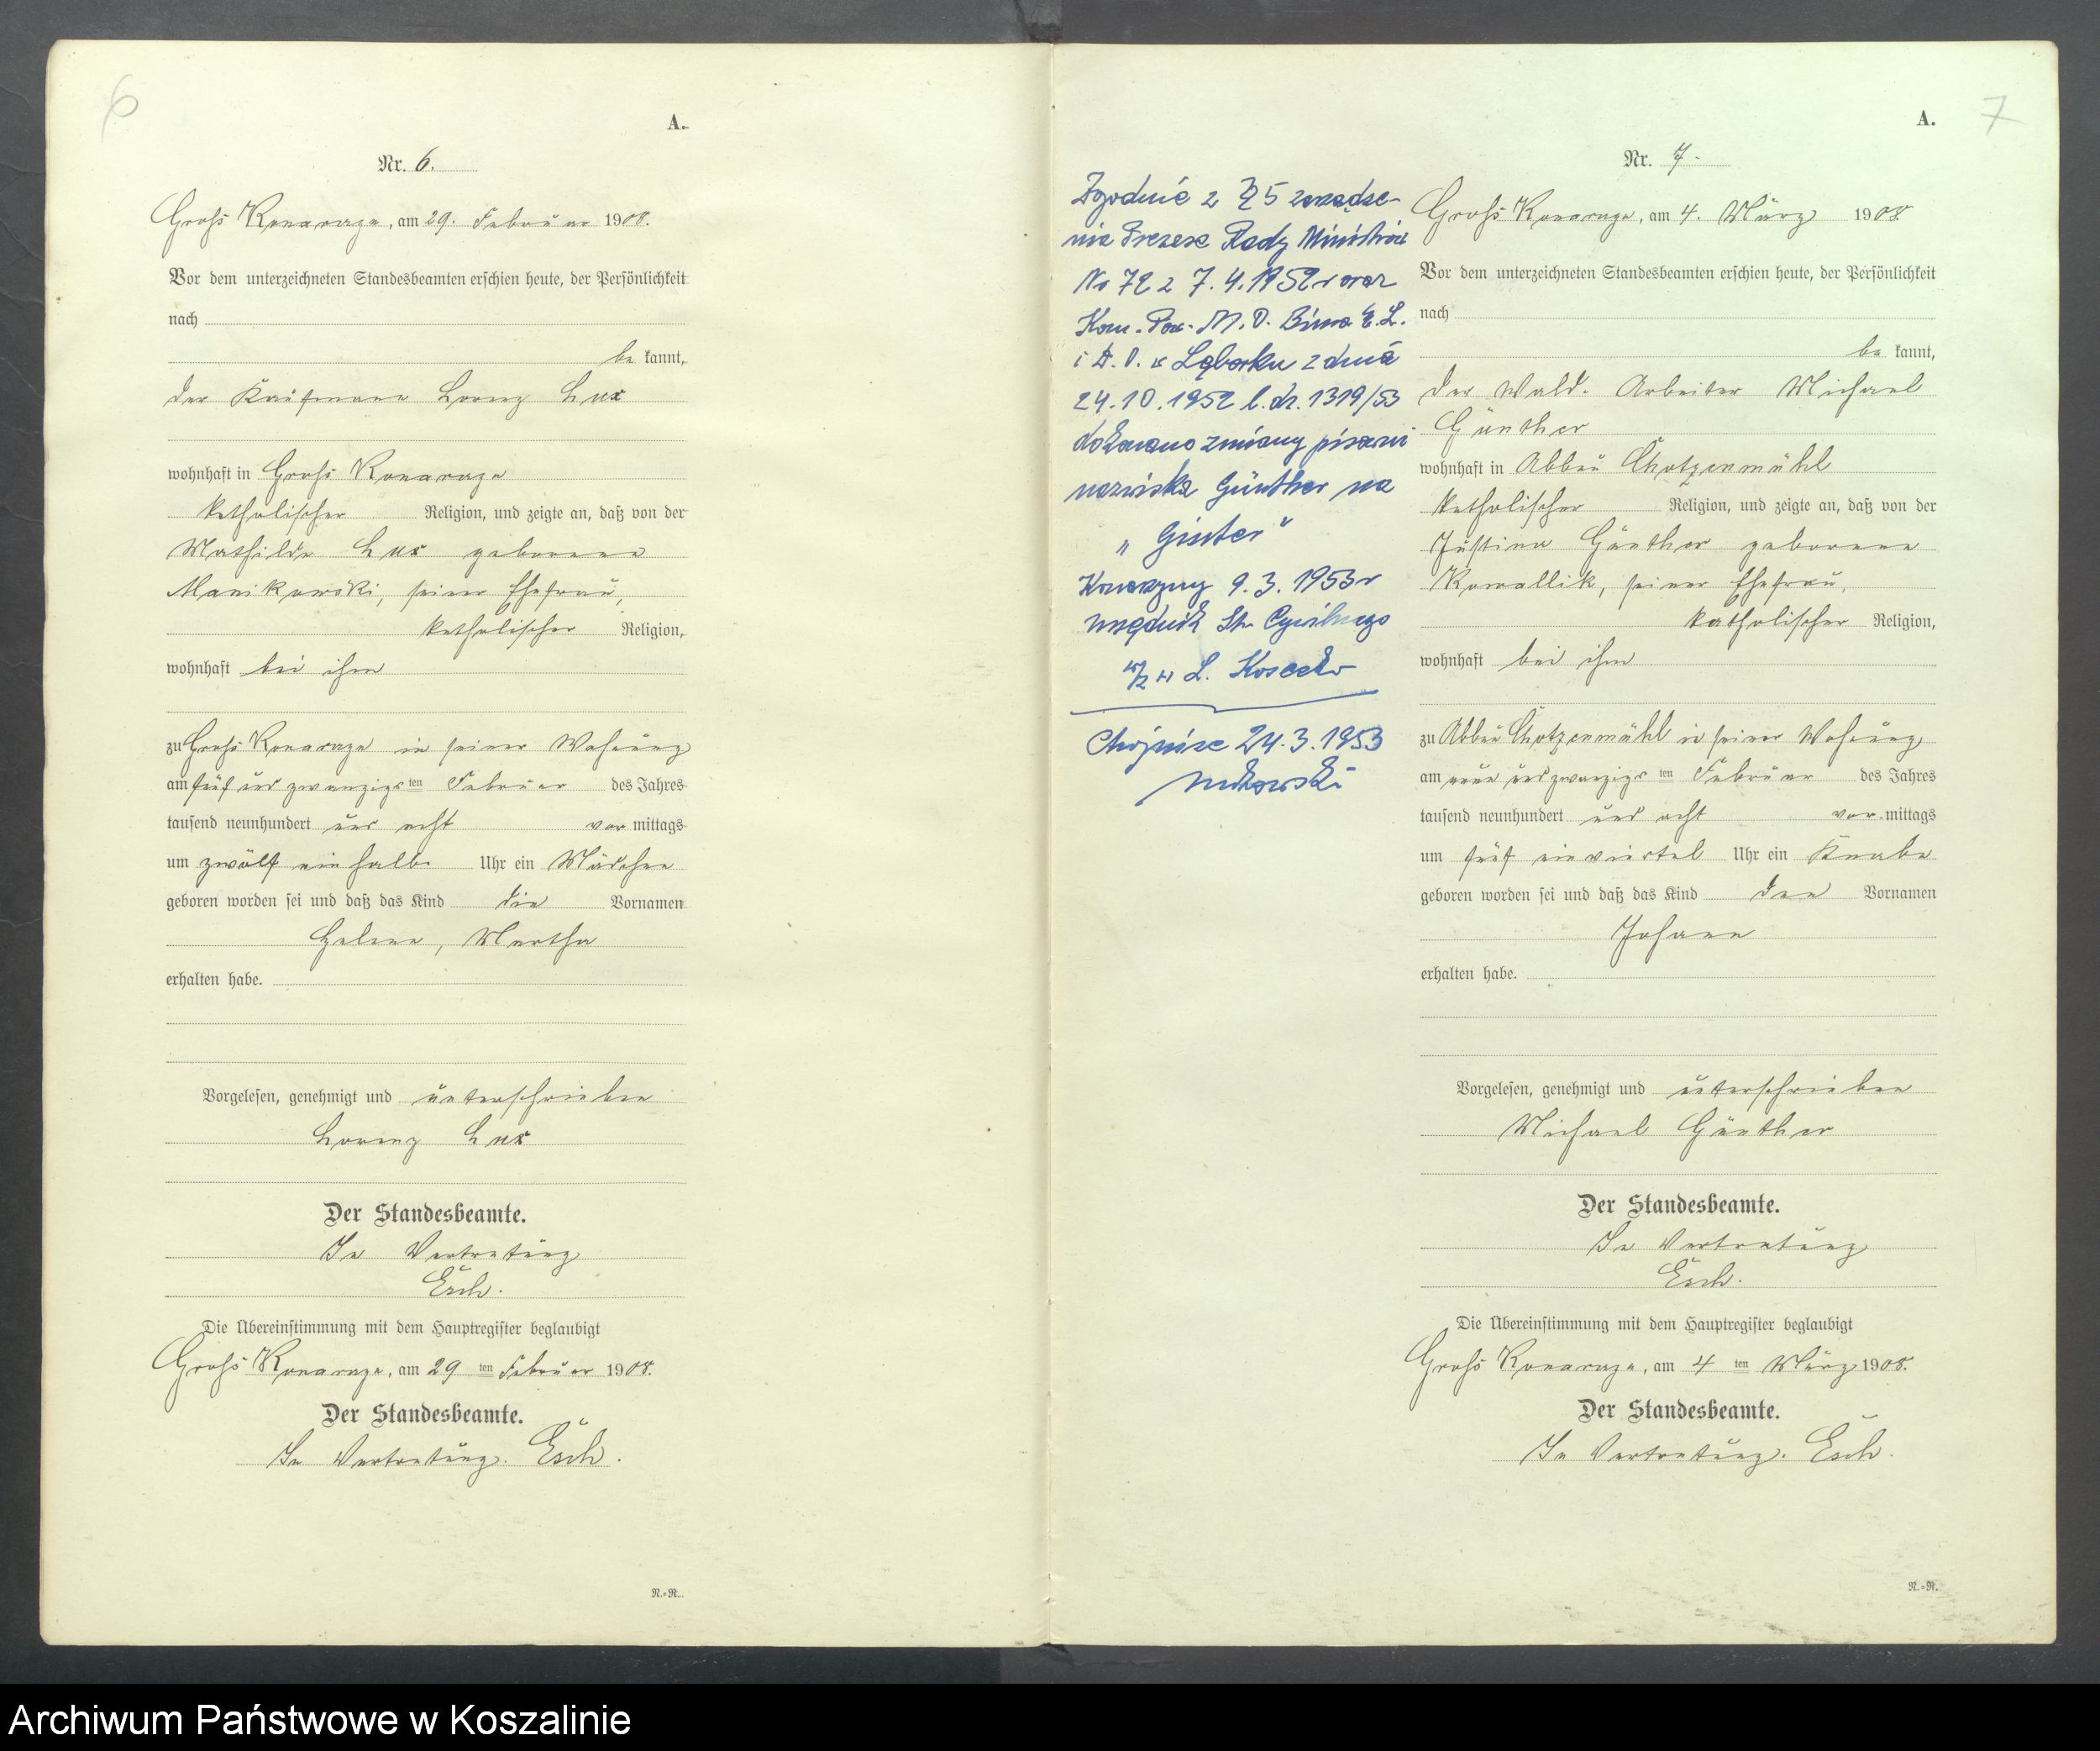 6
A.
Nr. 6.
Groß Konarczyn, am 29. Februar 1908.
Vor dem unterzeichneten Standesbeamten erschien heute, der Persönlichkeit
nach
be kannt,
der Kaufmann Lorenz Lux
wohnhaft in Groß Konarczyn
katholischer Religion, und zeigte an, daß von der
Mathilde Lux geborene
Manikowski, seiner Ehefrau,
katholischer Religion,
wohnhaft bei ihm
zu Groß Konarczyn in seiner Wohnung
am fünf und zwanzigsten Februar des Jahres
tausend neunhundert und acht vor mittags
um zwölf ein halb Uhr ein Mädchen
geboren worden sei und daß das Kind die Vornamen
Helene, Martha
erhalten habe.
Vorgelesen, genehmigt und unterschrieben
Lorenz Lux
Der Standesbeamte.
In Vertretung
Esch.
Die Übereinstimmung mit dem Hauptregister beglaubigt
Groß Konarczyn, am 29 ten Februar 1908.
Der Standesbeamte.
In Vertretung. Esch.
N.=R.
Zgodnie z § 5 zarządze-
nia Prezesa Rady Ministrów
No 72 z 7.4.1952 r oraz
24.10.1952 l.dz. 1319/53
dokonano zmiany pisowni
nazwiska Günther na
„Ginter"
Konarzyny 9.3.1953 r
urzędnik St. Cywilnego
Chojnice 24.3.1953
7
A.
Nr. 7.
Groß Konarczyn, am 4. März 1908
Vor dem unterzeichneten Standesbeamten erschien heute, der Persönlichkeit
nach
be kannt,
der Wald-Arbeiter Michael
Günther
wohnhaft in Abbau Chotzenmühl
katholischer Religion, und zeigte an, daß von der
Justina Günther geborene
Kowallik, seiner Ehefrau,
katholischer Religion,
wohnhaft bei ihm
zu Abbau Chotzenmühl in seiner Wohnung
am neun und zwanzigsten Februar des Jahres
tausend neunhundert und acht vor mittags
um fünf einviertel Uhr ein Knabe
geboren worden sei und daß das Kind den Vornamen
Johann
erhalten habe.
Vorgelesen, genehmigt und unterschrieben
Michael Günther
Der Standesbeamte.
In Vertretung
Esch.
Die Übereinstimmung mit dem Hauptregister beglaubigt
Groß Konarczyn, am 4 ten März 1908.
Der Standesbeamte.
In Vertretung. Esch.
N.=R.
Archiwum Państwowe w Koszalinie